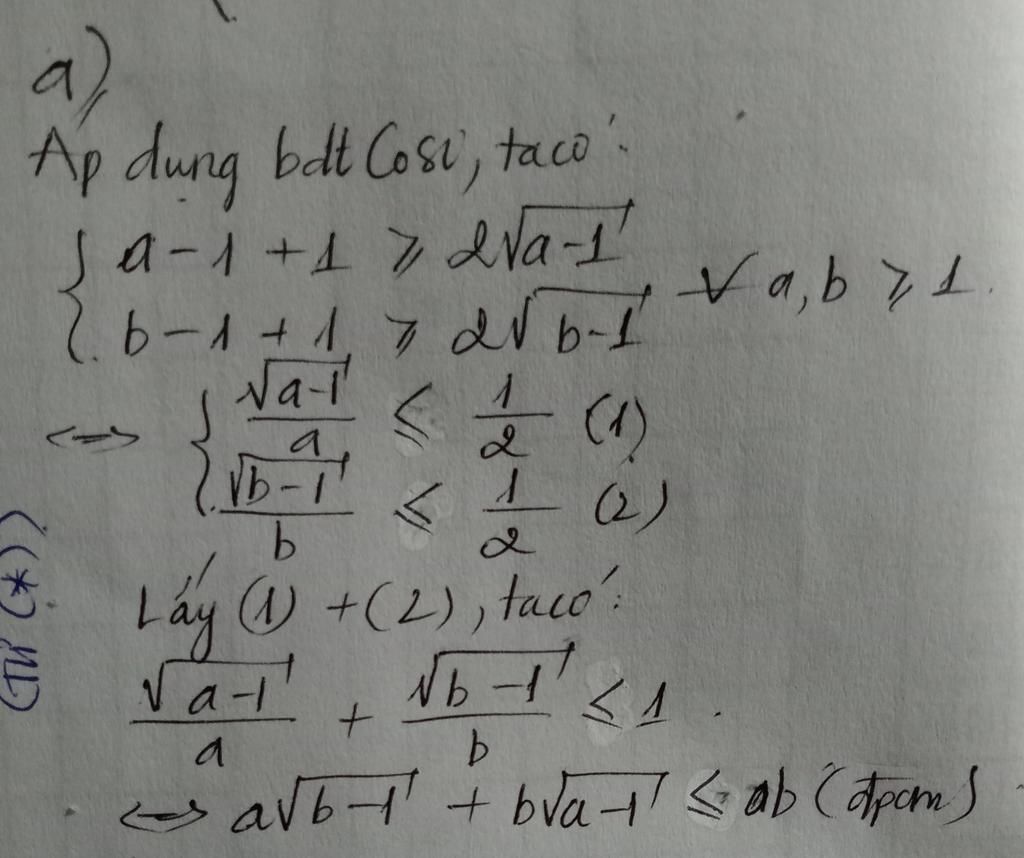 a)
Áp dụng bđt Cosi, ta có:
{ a - 1 + 1 ≥ 2√(a-1)
{ b - 1 + 1 ≥ 2√(b-1) ∀ a, b ≥ 1.
<=> { √(a-1)/a ≤ 1/2 (1)
{ √(b-1)/b ≤ 1/2 (2)
(Từ (*))
Lấy (1) + (2), ta có:
√(a-1)/a + √(b-1)/b ≤ 1.
<=> a√(b-1) + b√(a-1) ≤ ab (đpcm)